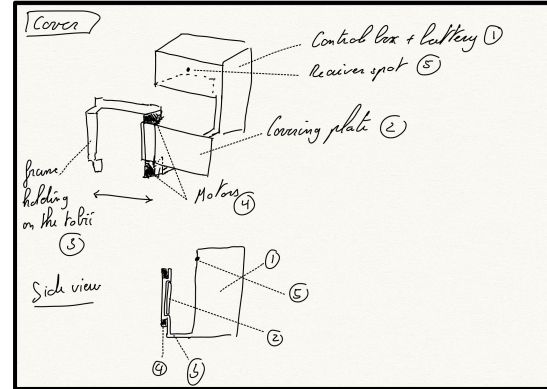 Cover
Control box + battery ①
Receiver spot ⑤
Covering plate ②
Motors ④
frame
holding
on the tobii
③
Side view
①
⑤
②
④
③